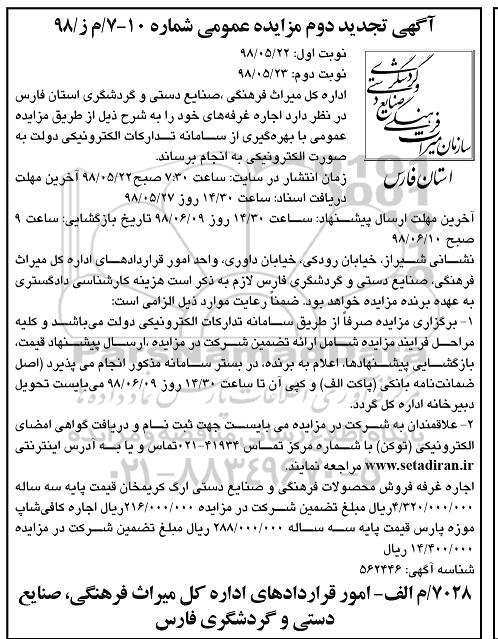 آگهی تجدید دوم مزایده عمومی شماره ۱۰-۷/م ز/۹۸
نوبت اول: ۹۸/۰۵/۲۲
نوبت دوم: ۹۸/۰۵/۲۳
سازمان میراث فرهنگی صنایع دستی و گردشگری
استان فارس
اداره کل میراث فرهنگی ،صنایع دستی و گردشگری استان فارس
در نظر دارد اجاره غرفه‌های خود را به شرح ذیل از طریق مزایده
عمومی با بهره‌گیری از سامانه تدارکات الکترونیکی دولت به
صورت الکترونیکی به انجام برساند.
زمان انتشار در سایت: ساعت ۷:۳۰ صبح۹۸/۰۵/۲۲ آخرین مهلت
دریافت اسناد: ساعت ۱۴/۳۰ روز ۹۸/۰۵/۲۷
آخرین مهلت ارسال پیشنهاد: ساعت ۱۴/۳۰ روز ۹۸/۰۶/۰۹ تاریخ بازگشایی: ساعت ۹
صبح ۹۸/۰۶/۱۰
نشانی شیراز، خیابان رودکی، خیابان داوری، واحد امور قراردادهای اداره کل میراث
فرهنگی، صنایع دستی و گردشگری فارس لازم به ذکر است هزینه کارشناسی دادگستری
به عهده برنده مزایده خواهد بود. ضمناً رعایت موارد ذیل الزامی است:
۱- برگزاری مزایده صرفاً از طریق سامانه تدارکات الکترونیکی دولت می‌باشد و کلیه
مراحل فرایند مزایده شامل ارائه تضمین شرکت در مزایده ،ارسال پیشنهاد قیمت،
بازگشایی پیشنهادها، اعلام به برنده، در بستر سامانه مذکور انجام می پذیرد (اصل
ضمانت‌نامه بانکی (پاکت الف) و کپی آن تا ساعت ۱۴/۳۰ روز ۹۸/۰۶/۰۹ می‌بایست تحویل
دبیرخانه اداره کل گردد.
۲- علاقمندان به شرکت در مزایده می بایست جهت ثبت نام و دریافت گواهی امضای
الکترونیکی (توکن) با شماره مرکز تماس ۴۱۹۳۴-۰۲۱تماس و یا به آدرس اینترنتی
www.setadiran.ir مراجعه نمایند.
اجاره غرفه فروش محصولات فرهنگی و صنایع دستی ارگ کریمخان قیمت پایه سه ساله
۴/۳۲۰/۰۰۰/۰۰۰ریال مبلغ تضمین شرکت در مزایده ۲۱۶/۰۰۰/۰۰۰ریال اجاره کافی‌شاپ
موزه پارس قیمت پایه سه ساله ۲۸۸/۰۰۰/۰۰۰ ریال مبلغ تضمین شرکت در مزایده
۱۴/۴۰۰/۰۰۰ ریال
شناسه آگهی: ۵۶۲۴۴۶
۷۰۲۸/م الف- امور قراردادهای اداره کل میراث فرهنگی، صنایع
دستی و گردشگری فارس
ParsNamadData
۰۲۱-۸۸۳۴۹۶۷۰-۵